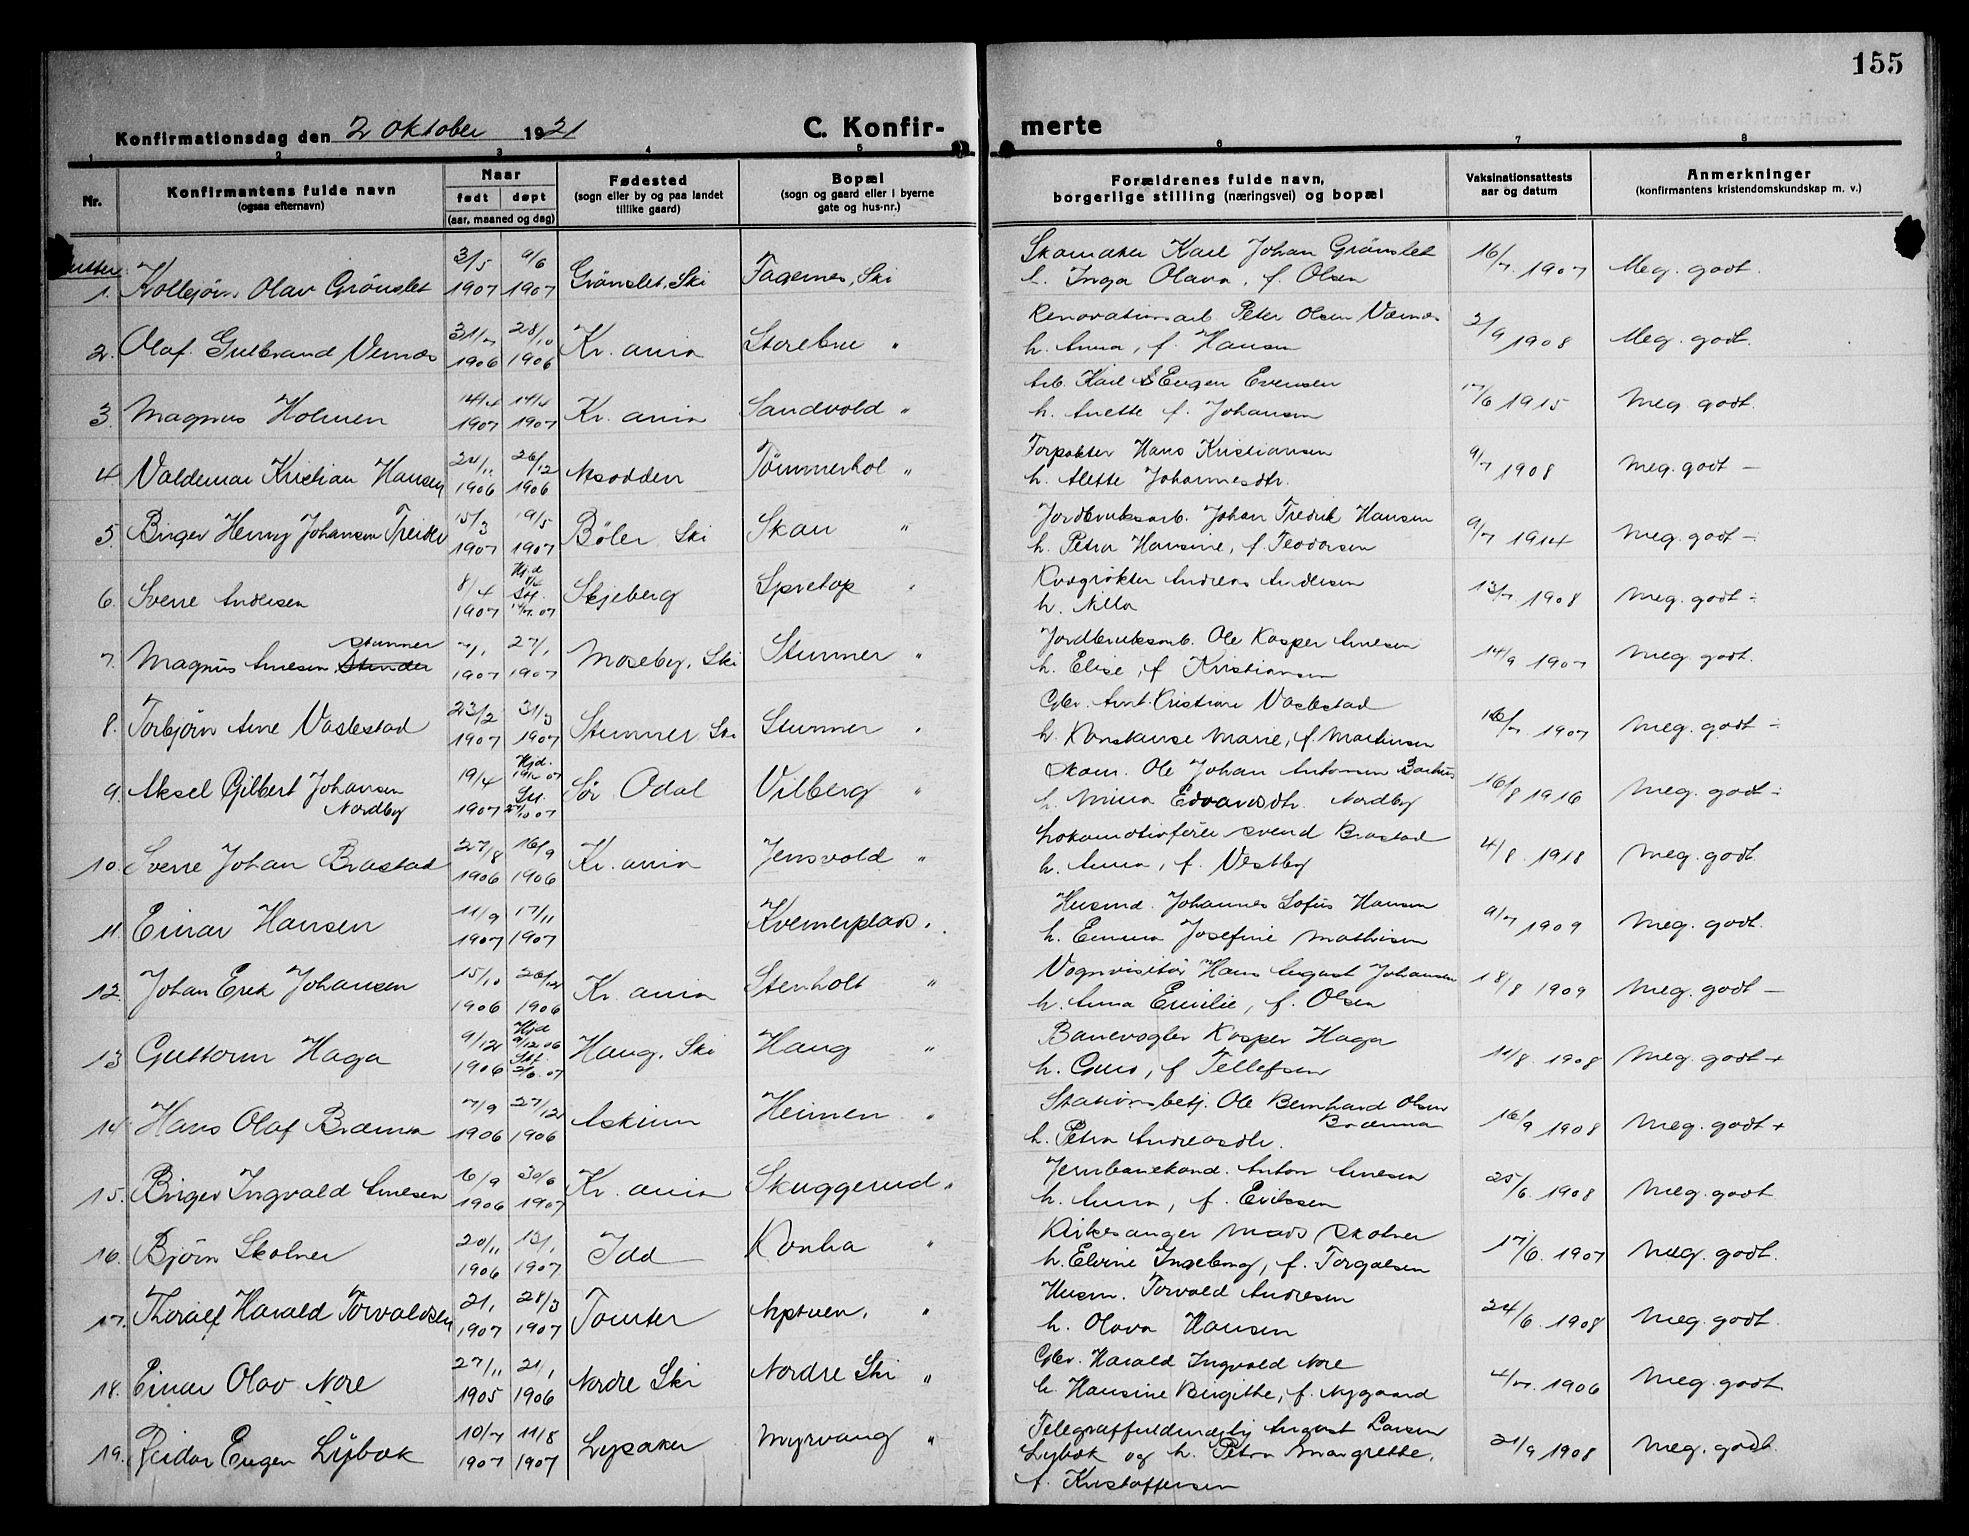 155
Konfirmationsdag den 2 Oktober 1921 C. Konfir- merte
1 2 3 4 5 6 7 8
Nr. Konfirmantens fulde navn (ogsaa efternavn) Naar født døpt (aar, maaned og dag) Fødested (sogn eller by og paa landet tillike gaard) Bopæl (sogn og gaard eller i byerne gate og hus-nr.) Forældrenes fulde navn, borgerlige stilling (næringsvei) og bopæl Vaksinationsattests aar og datum Anmerkninger (konfirmantens kristendomskundskap m. v.)
3/5 9/6 Skomaker Karl Johan Grønslet
1. Kolbjørn Olav Grønslet 1907 1907 Grønslet, Ski Fagernes, Ski h. Inga Olava, f. Olsen 16/7 1907 Meg. godt.
31/7 28/10 Renovationsarb. Peter Olsen Vernes
2. Olaf Gulbrand Vernes 1906 1906 Kr. ania Storebru " h. Anna, f. Hansen 2/9 1908 Meg. godt.
14/4 14/4 Arb. Karl Eugen Evensen
3. Magnus Holmen 1907 1907 Kr. ania Sandvold " h. Anette f. Johansen 17/6 1915 Meg. godt.
24/11 26/12 Forpakter Hans Kristiansen
4. Valdemar Kristian Hansen 1906 1906 Nesodden Tømmerhol " h. Alette Johannesdtr. 9/7 1908 Meg. godt –
15/3 19/5 Jordbruksarb. Johan Fredrik Hansen
5. Birger Henry Johansen 1907 1907 Bøler, Ski Skau " h. Petra Hansine, f. Teodorsen 9/7 1914 Meg. godt –
8/4 Hjd. 8/4 Andreas Andersen
6. Sverre Andersen 1907 Stf. 14/7 07 Skjeberg " h. Milla 13/7 1908 Meg. godt –
Stunner 7/1 27/1 Jordbruksarb. Ole Kasper Arnesen
7. Magnus Arnesen 1907 1907 Moseby, Ski Stunner " h. Elise, f. Kristiansen 14/9 1907 Meg. godt.
23/2 31/3 Gbr. Arnt Kristian Vastestad
8. Torbjørn Arne Vastestad 1907 1907 Stunner, Ski Stunner " h. Konstanse Marie, f. Martinsen 16/7 1907 Meg. godt –
19/4 Hjd. 19/4 07 Skom. Ole Johan Antonsen
9. Aksel Gilbert Johansen Nordby 1907 Stf. 27/10 07 Sør Odal Vilberg " h. Mina Edvardsdtr. Nordby 16/8 1916 Meg. godt –
27/8 16/9 Lokomotivfører Svend Brastad
10. Sverre Johan Brastad 1906 1906 Kr. ania Jensvold " h. Anna, f. Vestby 4/8 1918 Meg. godt.
11/9 17/11 Husmd. Johannes Sofus Hansen
11 Einar Hansen 1907 1907 Kvernerplads " h. Emma Josefine Mathisen 9/7 1909 Meg. godt.
15/10 26/12 Vognvisitør Hans August Johansen
12. Johan Erik Johansen 1906 1906 Kr. ania Stenholt " h. Anna Emilie, f. Olsen 18/8 1909 Meg. godt –
9/12 Hjd. 9/12 06 Banevogter Kasper Haga
13 Guttorm Haga 1906 Stf. 2/6 07 Haug, Ski Haug " h. Guro, f. Tellefsen 11/8 1908 Meg. godt +
7/9 27/12 Stationsbetj. Ole Bernhard Olsen Brænna
14. Hans Olaf Brænna 1906 1906 Askim Heimen " h. Petra Andreasdtr. 16/9 1908 Meg. godt +
16/9 30/6 Jernbanekond. Anton Arnesen
15. Birger Ingvald Arnesen 1906 1907 Kr. ania Skuggerud " h. Anna, f. Eriksen 25/6 1908 Meg. godt
20/11 13/1 Kirkesanger Mads Skolner
16. Bjørn Skolner 1906 1907 Idd Kontra " h. Elvine Ingeborg, f. Torgalsen 17/6 1907 Meg. godt.
21/1 28/3 Husm. Torvald Andresen
17. Thoralf Harald Torvaldsen 1907 1907 Tomter " h. Olava Hansen 24/6 1908 Meg. godt.
27/11 21/1 Gbr. Harald Ingvald Nore
18. Einar Olav Nore 1905 1906 Nordre Ski Nordre Ski " h. Hansine Birgithe, f. Nygaard 4/7 1906 Meg. godt
10/7 11/8 Telegraffuldmægtig August Larsen
19. Reidar Eugen Lybæk 1907 1907 Lysaker Myrvang " Lybæk og h. Petra Margrethe, 21/9 1908 Meg. godt.
f. Kristoffersen